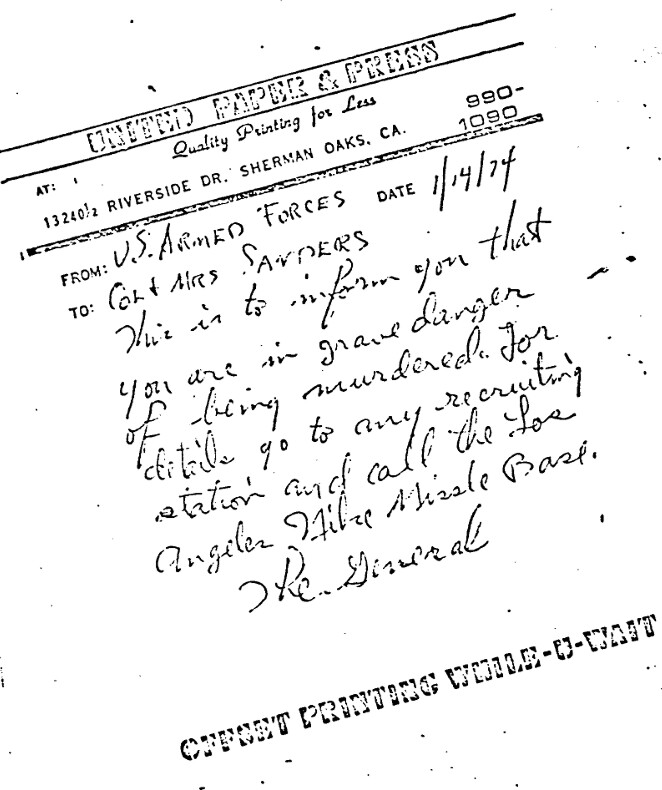 UNITED PAPER & PRESS
Quality Printing for Less
990-
1090
AT:
13240½ RIVERSIDE DR. SHERMAN OAKS, CA.
FROM: U.S. ARMED FORCES DATE 1/14/74
TO: COL & MRS SANDERS
This is to inform you that
you are in grave danger
of being murdered. For
details go to any recruiting
station and call the Los
Angeles Nike Missle Base.
The General
OFFSET PRINTING WHILE-U-WAIT